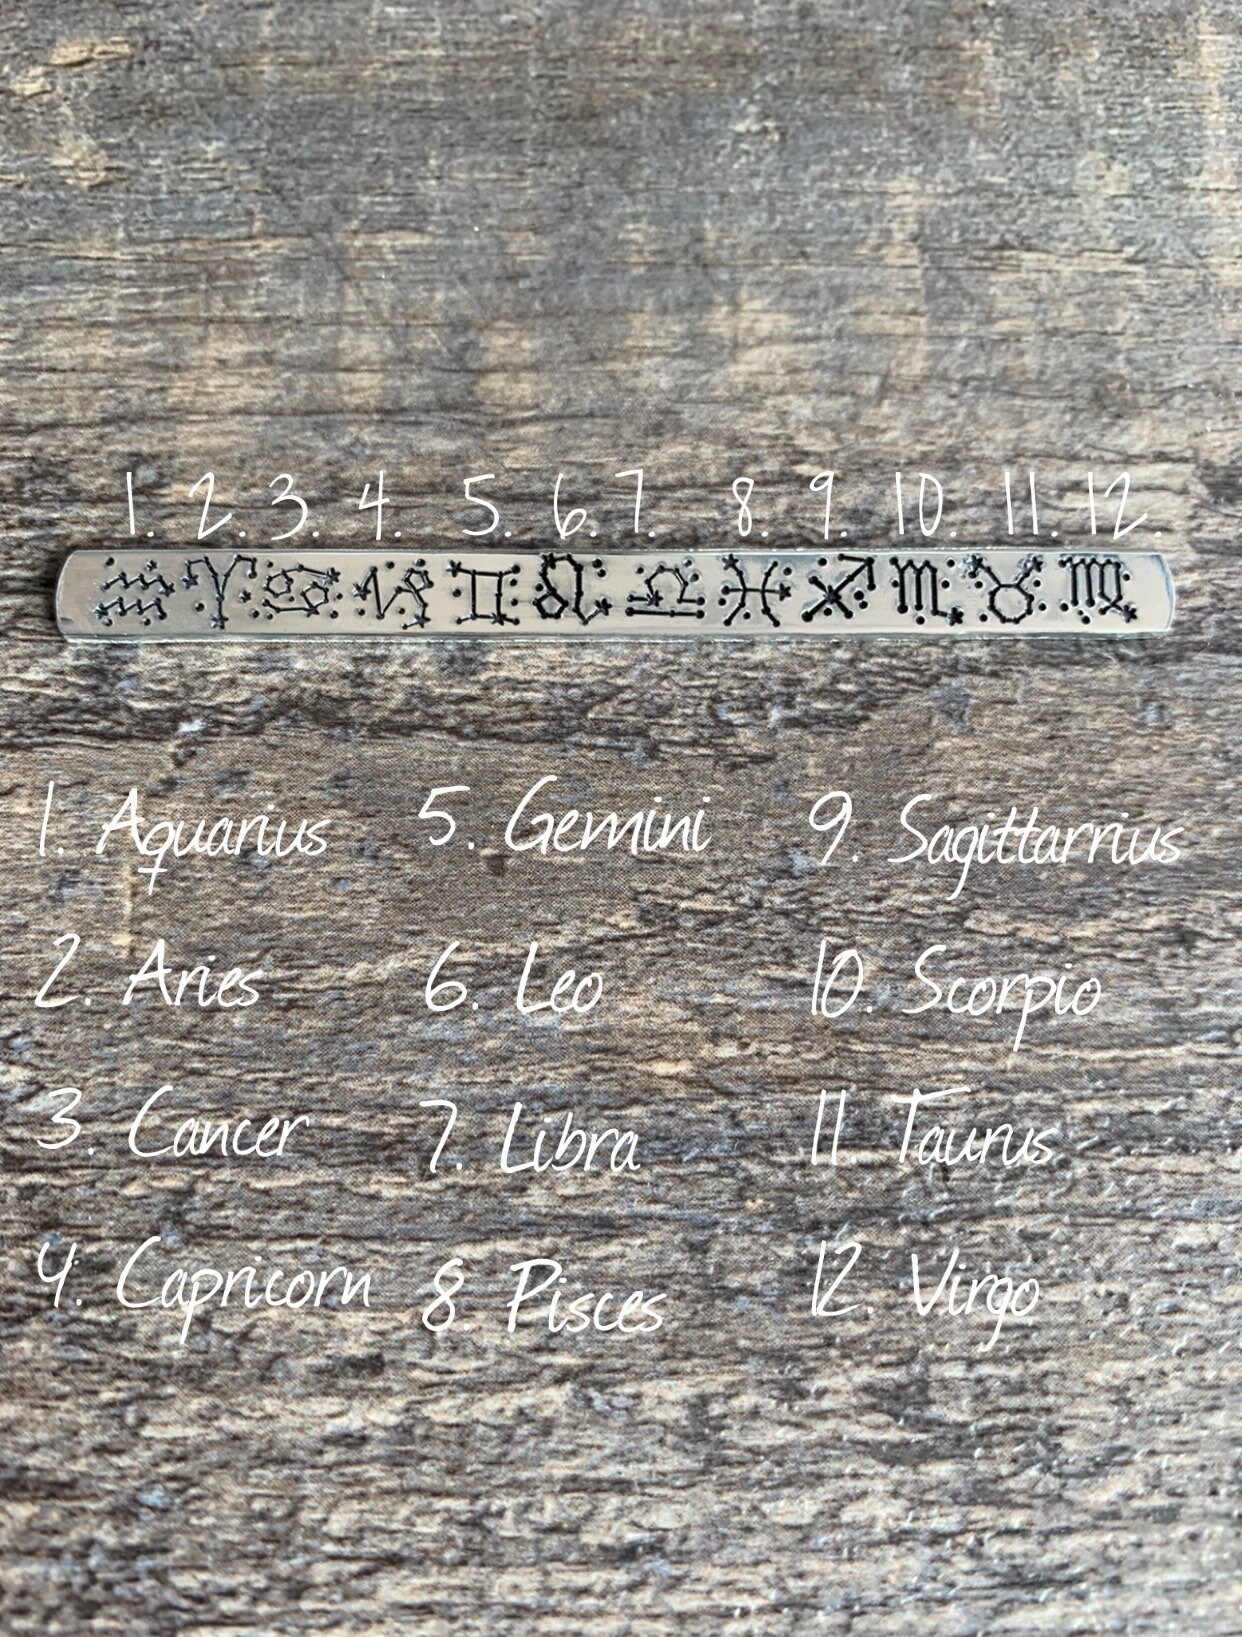 1. 2. 3. 4. 5. 6. 7. 8. 9. 10. 11. 12.
1. Aquarius
2. Aries
3. Cancer
4. Capricorn
5. Gemini
6. Leo
7. Libra
8. Pisces
9. Sagittarrius
10. Scorpio
11. Taurus
12. Virgo